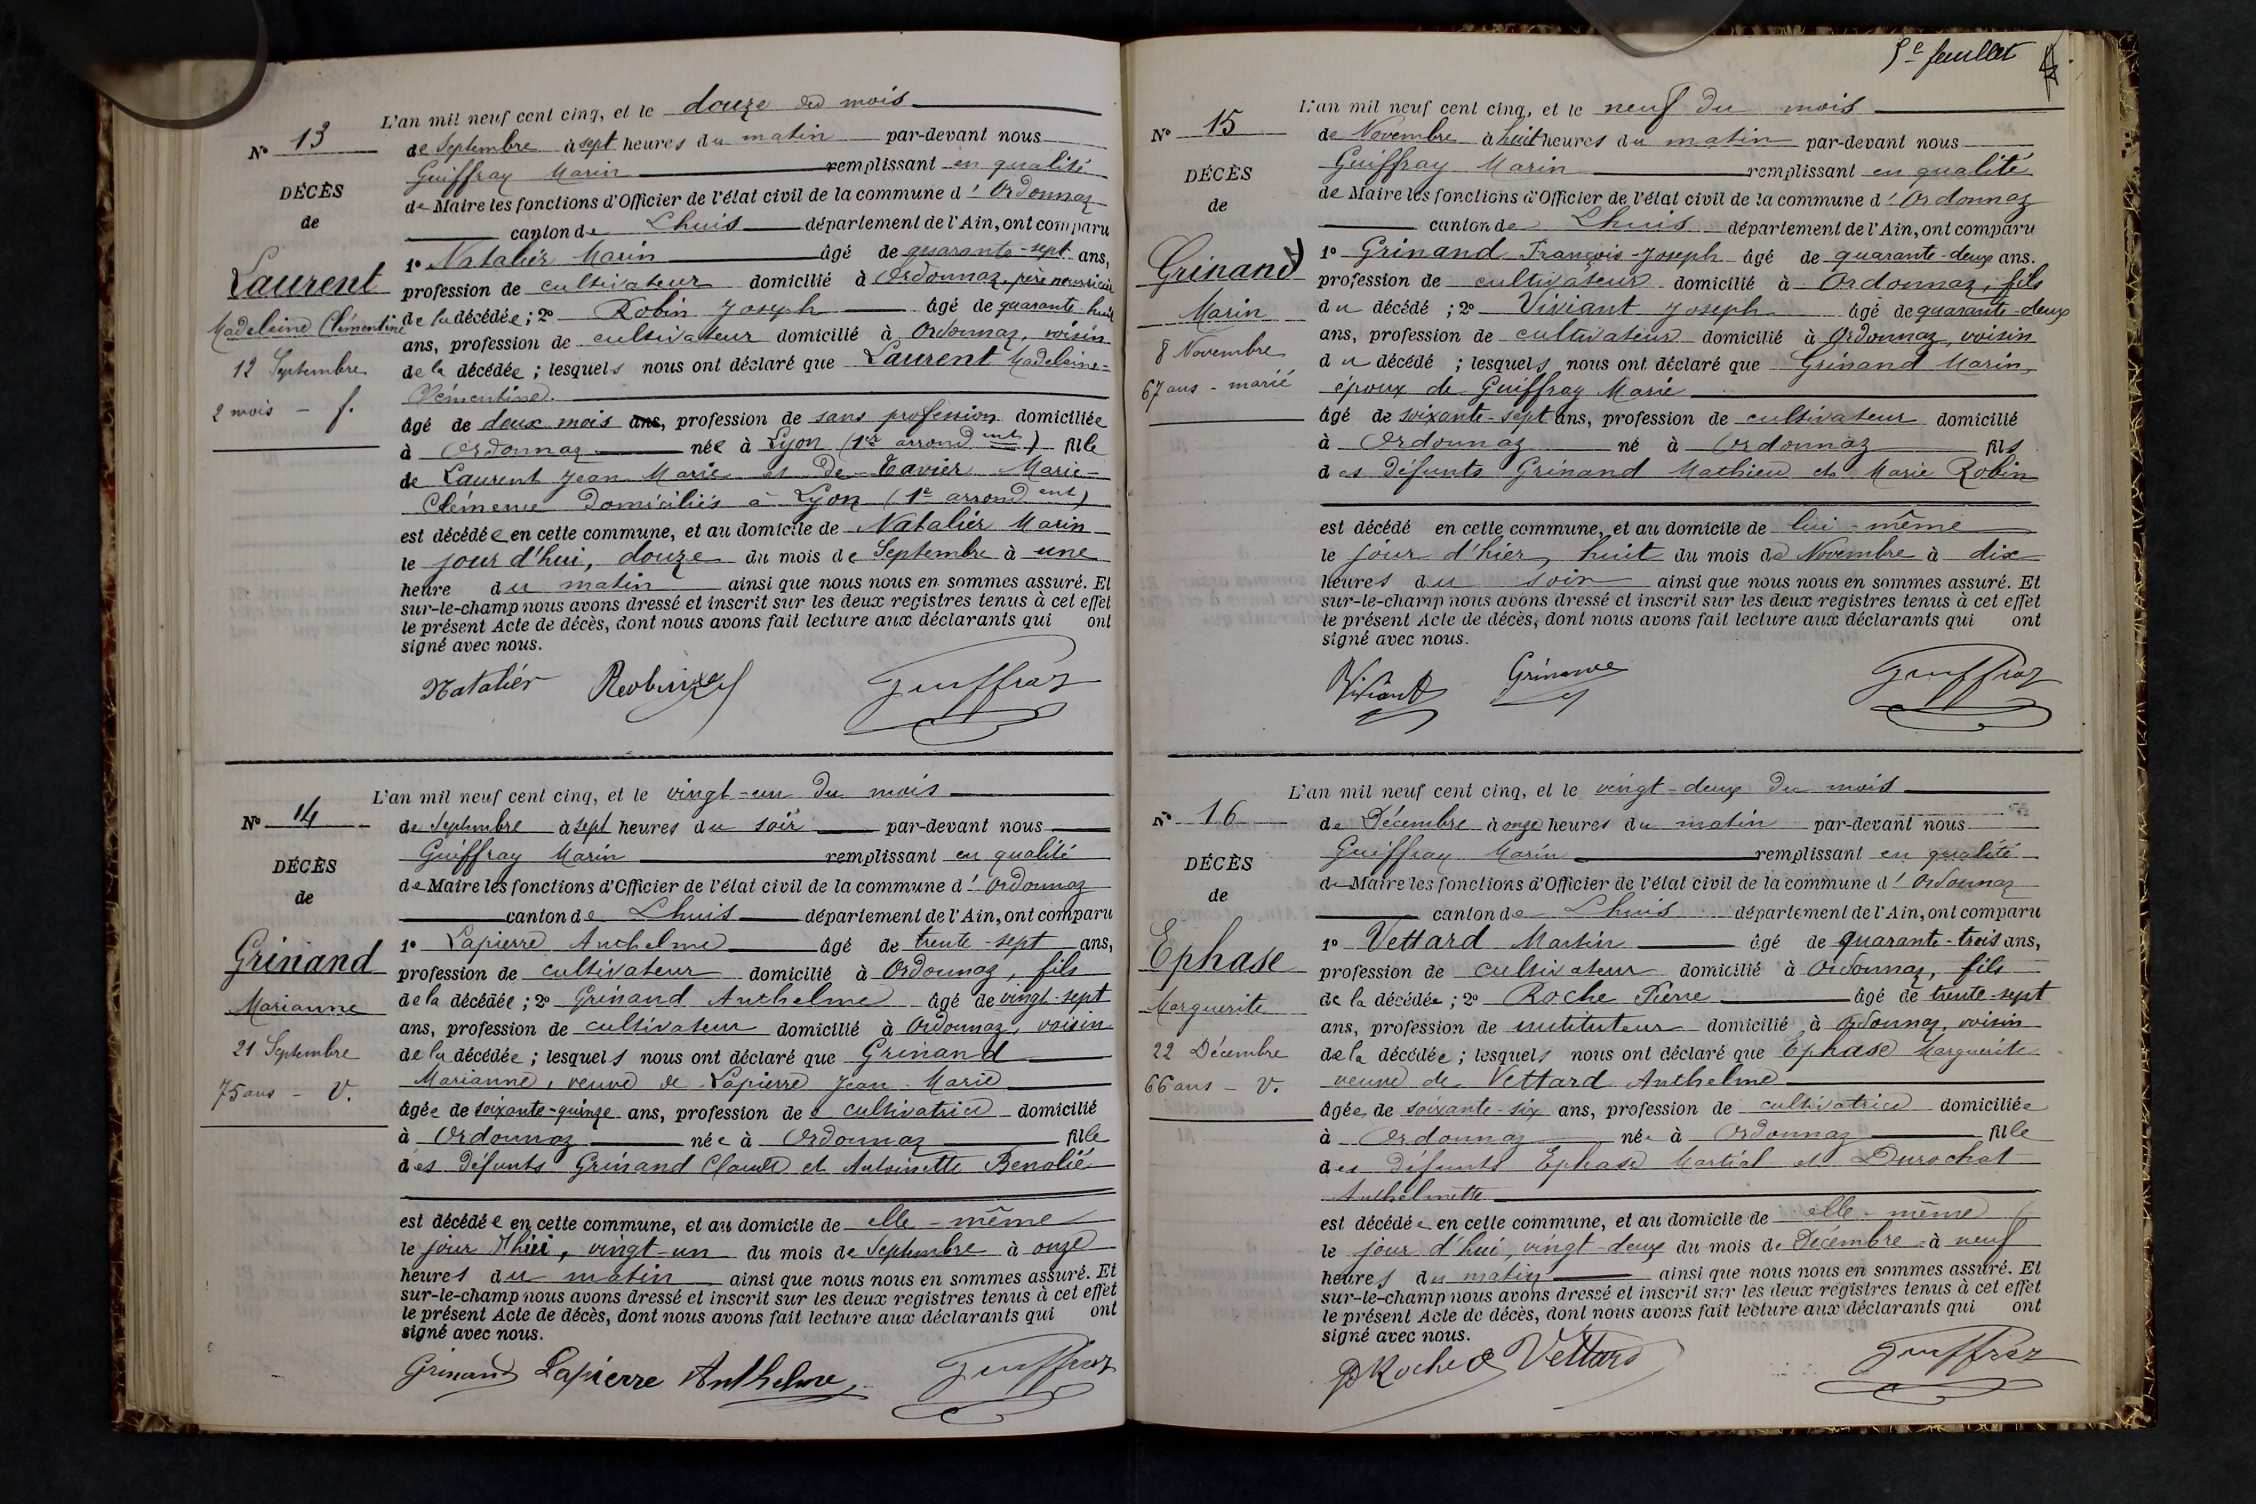 N° 13
DÉCÈS
de
Laurent
Madeleine Clémentine
12 Septembre
2 mois - f.
L'an mil neuf cent cinq, et le douze du mois
de Septembre à sept heures du matin par-devant nous
Guiffray Marin remplissant en qualité
de Maire les fonctions d'Officier de l'état civil de la commune d'Ordonnaz
canton de Lhuis département de l'Ain, ont comparu
1° Natalier Marin âgé de quarante-sept ans,
profession de cultivateur domicilié à Ordonnaz, père nourricier
de la décédée ; 2° Robin Joseph âgé de quarante huit
ans, profession de cultivateur domicilié à Ordonnaz, voisin
de la décédée ; lesquels nous ont déclaré que Laurent Madeleine-
Clémentine.
âgé de deux mois ans, profession de sans profession domiciliée
à Ordonnaz née à Lyon (1er arrondment) fille
de Laurent Jean Marie et de Tavier Marie-
Clémence domiciliés à Lyon (1e arrondent)
est décédée en cette commune, et au domicile de Natalier Marin
le jour d'hui, douze du mois de Septembre à une
heure du matin ainsi que nous nous en sommes assuré. Et
sur-le-champ nous avons dressé et inscrit sur les deux registres tenus à cet effet
le présent Acte de décès, dont nous avons fait lecture aux déclarants qui ont
signé avec nous.
Natalier Robin Guiffray
N° 14
DÉCÈS
de
Grinand
Marianne
21 Septembre
75 ans - V.
L'an mil neuf cent cinq, et le vingt-un du mois
de Septembre à sept heures du soir par-devant nous
Guiffray Marin remplissant en qualité
de Maire les fonctions d'Officier de l'état civil de la commune d'Ordonnaz
canton de Lhuis département de l'Ain, ont comparu
1° Lapierre Anthelme âgé de trente-sept ans,
profession de cultivateur domicilié à Ordonnaz, fils
de la décédée ; 2° Grinand Anthelme âgé de vingt-sept
ans, profession de cultivateur domicilié à Ordonnaz, voisin
de la décédée ; lesquels nous ont déclaré que Grinand
Marianne, veuve de Lapierre Jean-Marie
âgée de soixante-quinze ans, profession de cultivatrice domicilié
à Ordonnaz née à Ordonnaz fille
des défunts Grinand Claude et Antoinette Benolié
est décédée en cette commune, et au domicile de elle-même
le jour d'hui, vingt-un du mois de Septembre à onze
heures du matin ainsi que nous nous en sommes assuré. Et
sur-le-champ nous avons dressé et inscrit sur les deux registres tenus à cet effet
le présent Acte de décès, dont nous avons fait lecture aux déclarants qui ont
signé avec nous.
Grinand Lapierre Anthelme Guiffray
5e feuillet
N° 15
DÉCÈS
de
Grinand
Marin
8 Novembre
67 ans - marié
L'an mil neuf cent cinq, et le neuf du mois
de Novembre à huit heures du matin par-devant nous
Guiffray Marin remplissant en qualité
de Maire les fonctions d'Officier de l'état civil de la commune d'Ordonnaz
canton de Lhuis département de l'Ain, ont comparu
1° Grinand François-Joseph âgé de quarante-deux ans.
profession de cultivateur domicilié à Ordonnaz, fils
du décédé ; 2° Viviant Joseph âgé de quarante-deux
ans, profession de cultivateur domicilié à Ordonnaz, voisin
du décédé ; lesquels nous ont déclaré que Grinand Marin,
époux de Guiffray Marie
âgé de soixante-sept ans, profession de cultivateur domicilié
à Ordonnaz né à Ordonnaz fils
des défunts Grinand Mathieu et Marie Robin
est décédé en cette commune, et au domicile de lui-même
le jour d'hier, huit du mois de Novembre à dix
heures du soir ainsi que nous nous en sommes assuré. Et
sur-le-champ nous avons dressé et inscrit sur les deux registres tenus à cet effet
le présent Acte de décès, dont nous avons fait lecture aux déclarants qui ont
signé avec nous.
Viviant Grinand Guiffray
N° 16
DÉCÈS
de
Ephase
Marguerite
22 Décembre
66 ans - V.
L'an mil neuf cent cinq, et le vingt-deux du mois
de Décembre à onze heures du matin par-devant nous
Guiffray Marin remplissant en qualité
de Maire les fonctions d'Officier de l'état civil de la commune d'Ordonnaz
canton de Lhuis département de l'Ain, ont comparu
1° Vettard Martin âgé de quarante-trois ans,
profession de cultivateur domicilié à Ordonnaz, fils
de la décédée ; 2° Roche Pierre âgé de trente-sept
ans, profession de instituteur domicilié à Ordonnaz, voisin
de la décédée ; lesquels nous ont déclaré que Ephase Marguerite
veuve de Vettard Anthelme
âgée de soixante-six ans, profession de cultivatrice domiciliée
à Ordonnaz née à Ordonnaz fille
des défunts Ephase Martial et Durochat
Anthelmette
est décédée en cette commune, et au domicile de elle-même
le jour d'hui, vingt-deux du mois de Décembre à neuf
heures du matin ainsi que nous nous en sommes assuré. Et
sur-le-champ nous avons dressé et inscrit sur les deux registres tenus à cet effet
le présent Acte de décès, dont nous avons fait lecture aux déclarants qui ont
signé avec nous.
P Roche Vettard Guiffray